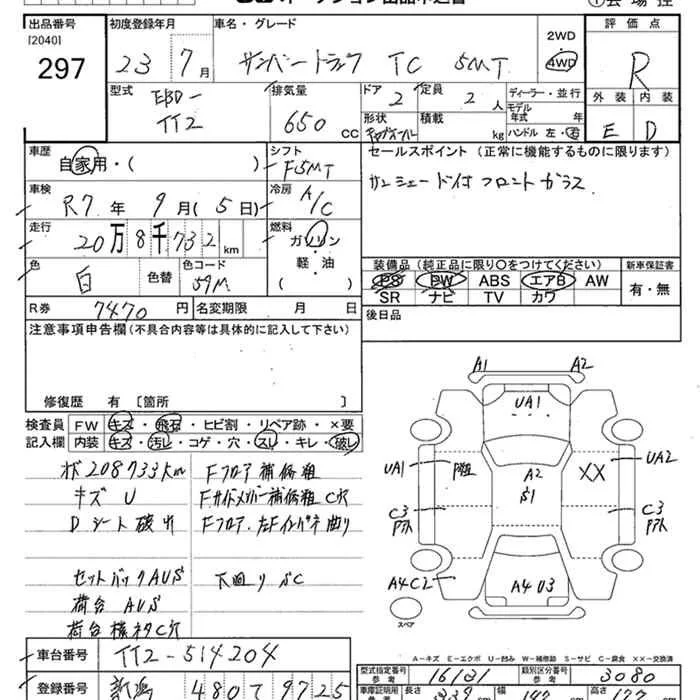 会場控
出品番号
[2040]
297
初度登録年月
23 7月
車名・グレード
サンバートラック TC 5MT
2WD
4WD
評価点
R
外装 内装
E D
型式
EBD-
TT2
排気量
650 cc
ドア
2
定員
2人
形状
積載
kg
ディーラー・並行
モデル年式 年
ハンドル 左・右
車歴
自家用・( )
シフト
F5MT
セールスポイント (正常に機能するものに限ります)
サンシェード付フロントガラス
車検
R7年 9月(5日)
冷房
A/C
走行
20万8千732km
燃料
ガソリン
軽・油
( )
色
白
色替
色コード
59M
装備品(純正品に限り○をつけてください)
PS PW ABS エアB AW
SR ナビ TV カワ
新車保証書
有・無
R券
7470円
名変期限 月 日
後日品
注意事項申告欄(不具合内容等は具体的に記入して下さい)
修復歴 有 [箇所 ]
検査員記入欄
FW キズ・飛石・ヒビ割・リペア跡・×要
内装 キズ・汚し・コゲ・穴・スレ・キレ・破レ
メ208733km
キズ U
Dシート破れ
セットバックAUS
荷台 AUS
荷台 横ネタC穴
Fフロア補修粗
Fサイドメンバー補修粗 C穴
Fフロア、左Fインパネ曲り
下回り SC
A1
A2
UA1
UA1
P粗
A2
S1
XX
UA2
C3
アト
C3
アト
A4C2
A4U3
スペア
A-キズ E-エクボ U-凹み W-補修跡 S-サビ C-腐食 XX-交換済
車台番号
TT2-514204
型式指定番号
参考
16131
類別区分番号
参考
3080
登録番号
新潟 480 て 9725
車庫証明用
参考
長さ
幅
高さ